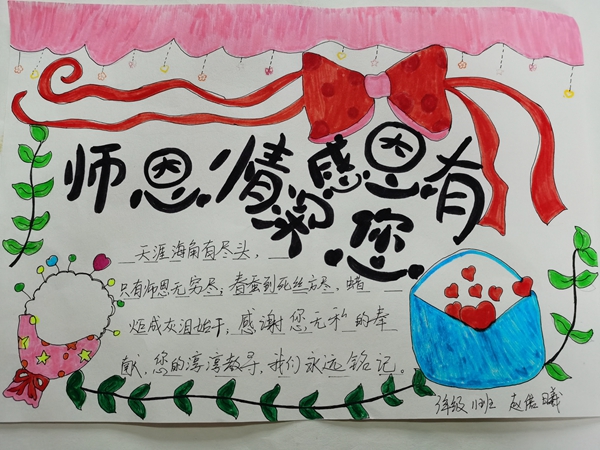 师恩情深感恩有您
天涯海角有尽头,
只有师恩无穷尽;春蚕到死丝方尽,蜡
炬成灰泪始干;感谢您无私的奉
献、您的淳淳教导,我们永远铭记。
年级 11班 赵 曦